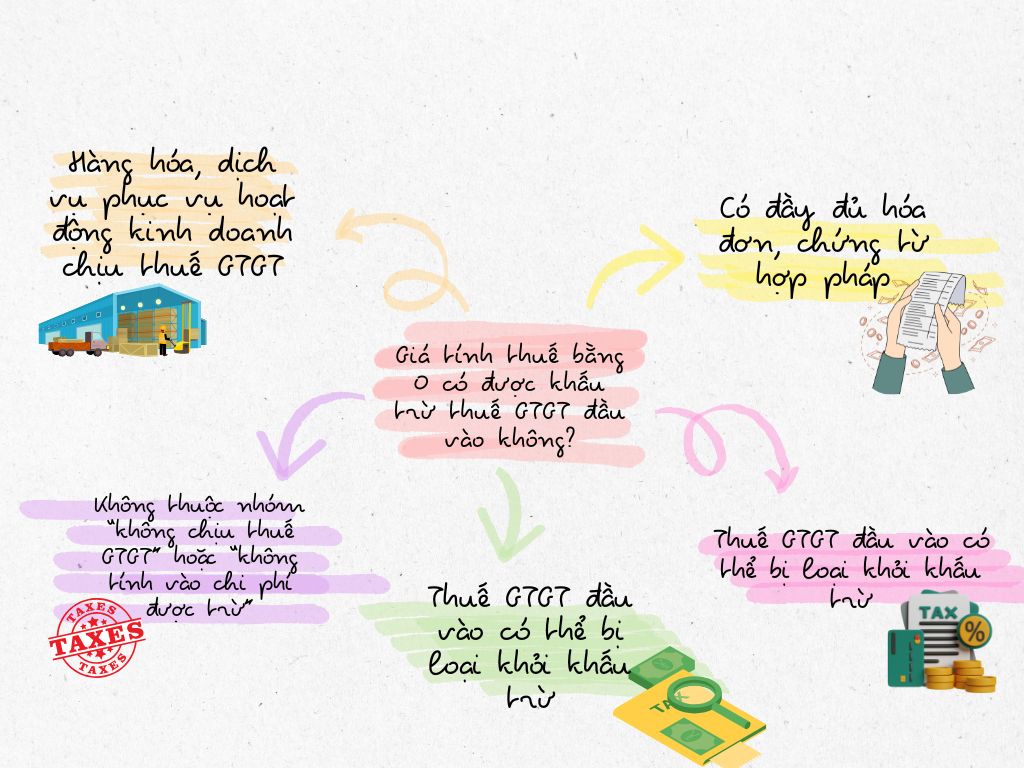 Hàng hóa, dịch
vụ phục vụ hoạt
động kinh doanh
chịu thuế GTGT
Có đầy đủ hóa
đơn, chứng từ
hợp pháp
Giá tính thuế bằng
0 có được khấu
trừ thuế GTGT đầu
vào không?
Không thuộc nhóm
“không chịu thuế
GTGT” hoặc “không
tính vào chi phí
được trừ”
TAXES
TAXES
TAXES
Thuế GTGT đầu
vào có thể bị
loại khỏi khấu
trừ
TAX
Thuế GTGT đầu vào có
thể bị loại khỏi khấu
trừ
TAX
%